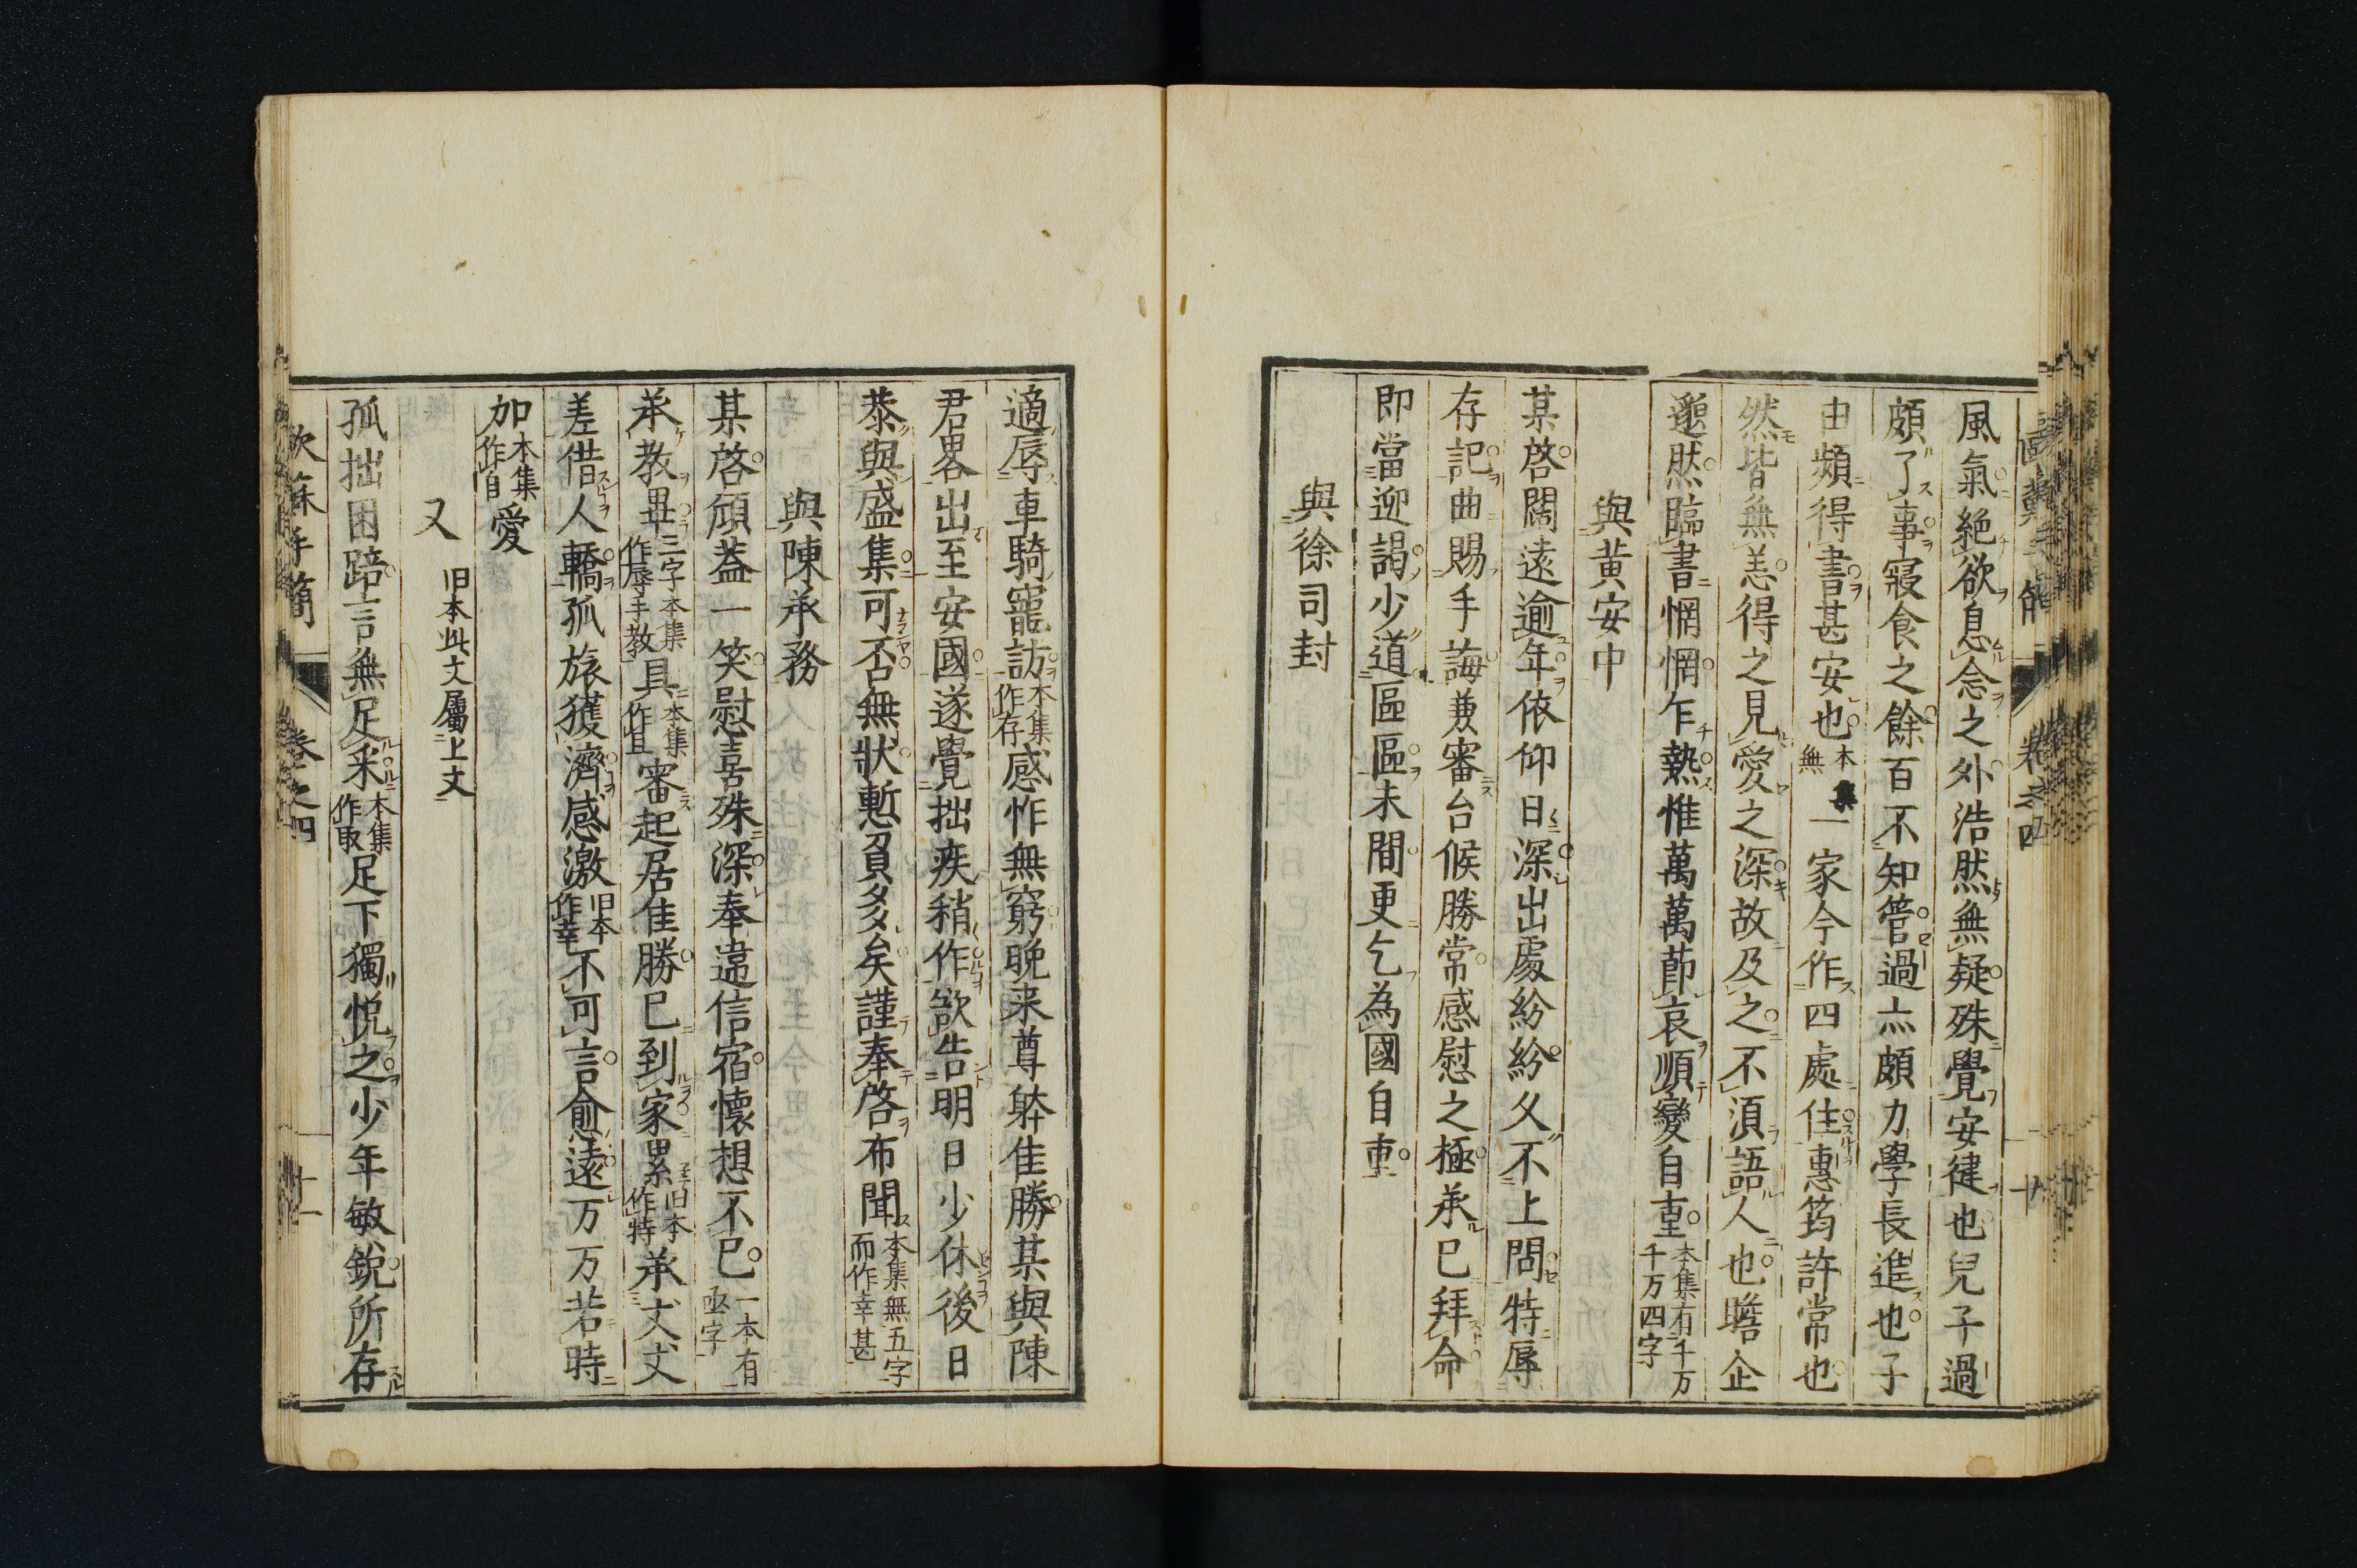 風氣絶欲息念之外浩然無疑殊覺安健也兒子過
頗了事寢食之餘百不知管過亦頗力學長進也子
由頻得書甚安也本集無一家今作四處住惠筠許常也
然皆無恙得之見愛之深故及之不湏語人也瞻企
邈然臨書惘惘乍熱惟萬萬莭哀順變自重本集有千万千万四字
與黄安中
某啓闊遠逾年依仰日深出處紛紛久不上問特辱
存記曲賜手誨兼審台候勝常感慰之極承已拜命
即當迎謁少道區區未間更乞為國自重
與徐司封
適辱車騎寵訪本集作存感怍無窮晚来尊躰佳勝某與陳
君畧出至安國遂覺拙疾稍作欲告明日少休後日
恭與盛集可否無狀慙負多矣謹奉啓布聞本集無五字而作幸甚
與陳承務
某啓頎葢一笑慰喜殊深奉違信宿懷想不已一本有亟字
承教畢三字本集作辱手教具本集作且審起居佳勝已到家累旧本作特承丈丈
差借人轎孤旅獲濟感激旧本作幸不可言愈遠万万若時
加本集作自愛
又 旧本此文屬上文
孤拙困踣言無足采本集作取足下獨悦之少年敏銳所存
歐蘇手簡 卷之四 十一